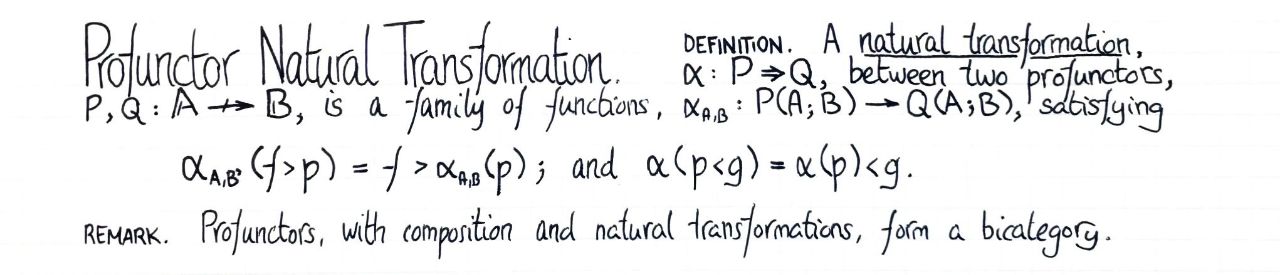 Profunctor Natural Transformation.
DEFINITION. A natural transformation,
α : P ⇒ Q, between two profunctors,
P, Q : A ⇸ B, is a family of functions, α_{A,B} : P(A; B) → Q(A; B), satisfying
α_{A,B'} (f > p) = f > α_{A,B}(p) ; and α(p < g) = α(p) < g.
REMARK. Profunctors, with composition and natural transformations, form a bicategory.